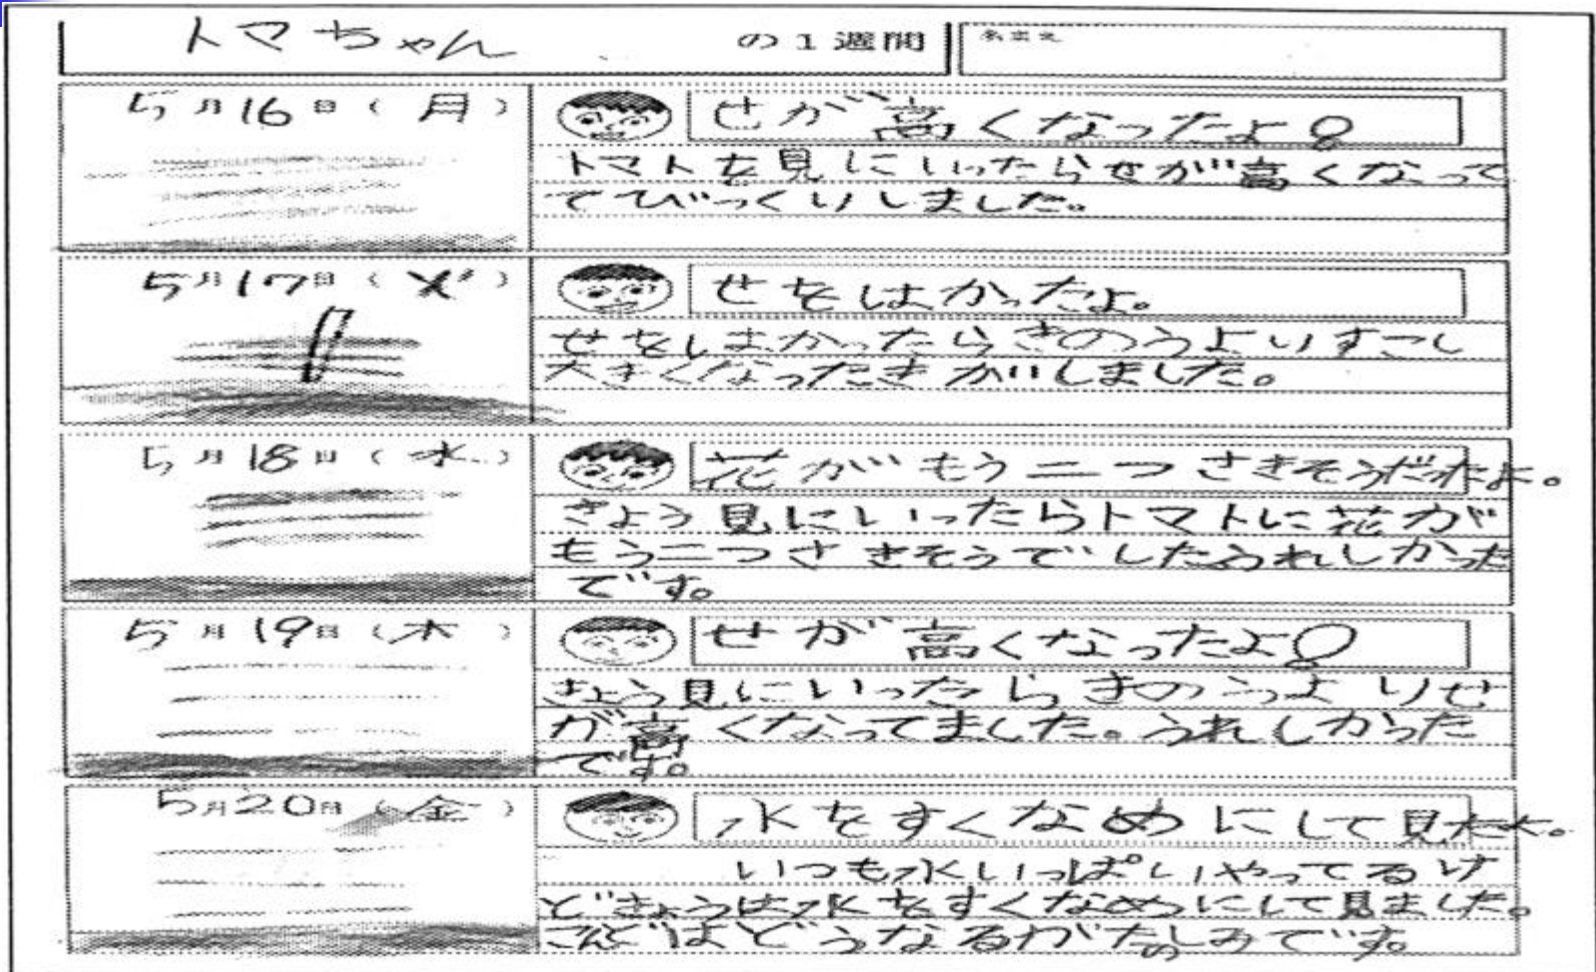 トマちゃん の1週間
名まえ
5月16日(月)
せが高くなったよ。
トマトを見にいったらせが高くなって
てびっくりしました。
5月17日(火)
せをはかったよ。
せをはかったらきのうよりすこし
大きくなったきがしました。
5月18日(水)
花がもう二つさきそうだたよ。
きょう見にいったらトマトに花が
もう二つさきそうでしたうれしかった
です。
5月19日(木)
せが高くなったよ。
きょう見にいったらきのうよりせ
が高くなってました。うれしかった
です。
5月20日(金)
水をすくなめにして見たよ。
いつも水いっぱいやってるけ
どきょうは水をすくなめにして見ました。
こんどはどうなるかがたのしみです。